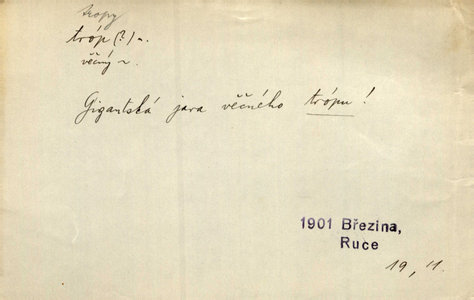 tropy
tróp (?) ~.
věčný ~.
Gigantská jara věčného trópu!
1901 Březina,
Ruce
19, 11.